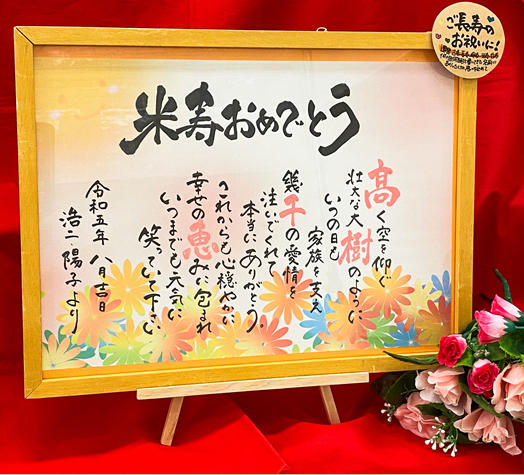 米寿おめでとう
高く空を仰ぐ
壮大な大樹のように
いつの日も
家族を支え
幾千の愛情を
注いでくれて
本当にありがとう。
これからも心穏やかに
幸せの恵みに包まれ
いつまでも元気に
笑っていて下さい
令和五年 八月吉日
浩二・陽子より
ご長寿の
お祝いに!